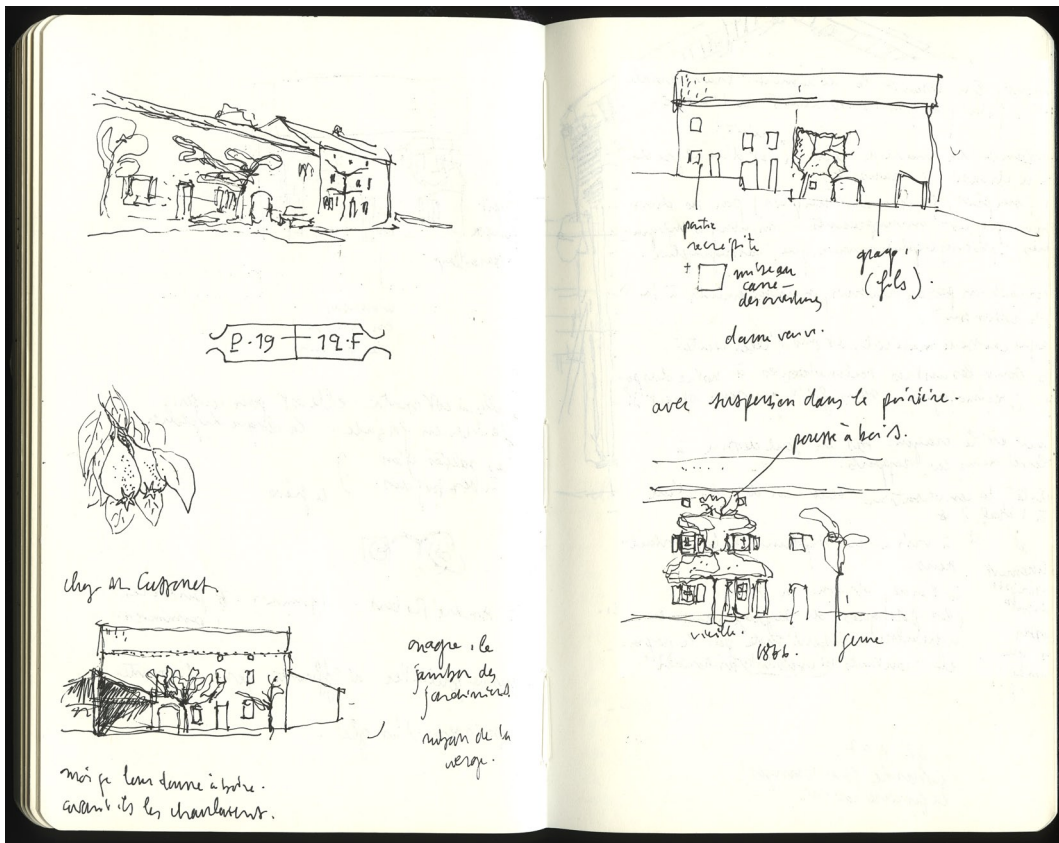 P·19 19·F
chez M. Cuffonet
onagre : le
jambon des
jardiniers
ruban de la
vierge.
moi je leur donne à boire.
avant ils les chaulaient.
partie
recrépite
+
mise au
carré
des ouvertures
garage
(fils).
dame veuve.
avec suspension dans le poirière.
pousse à bois.
vieille.
1866.
jeune